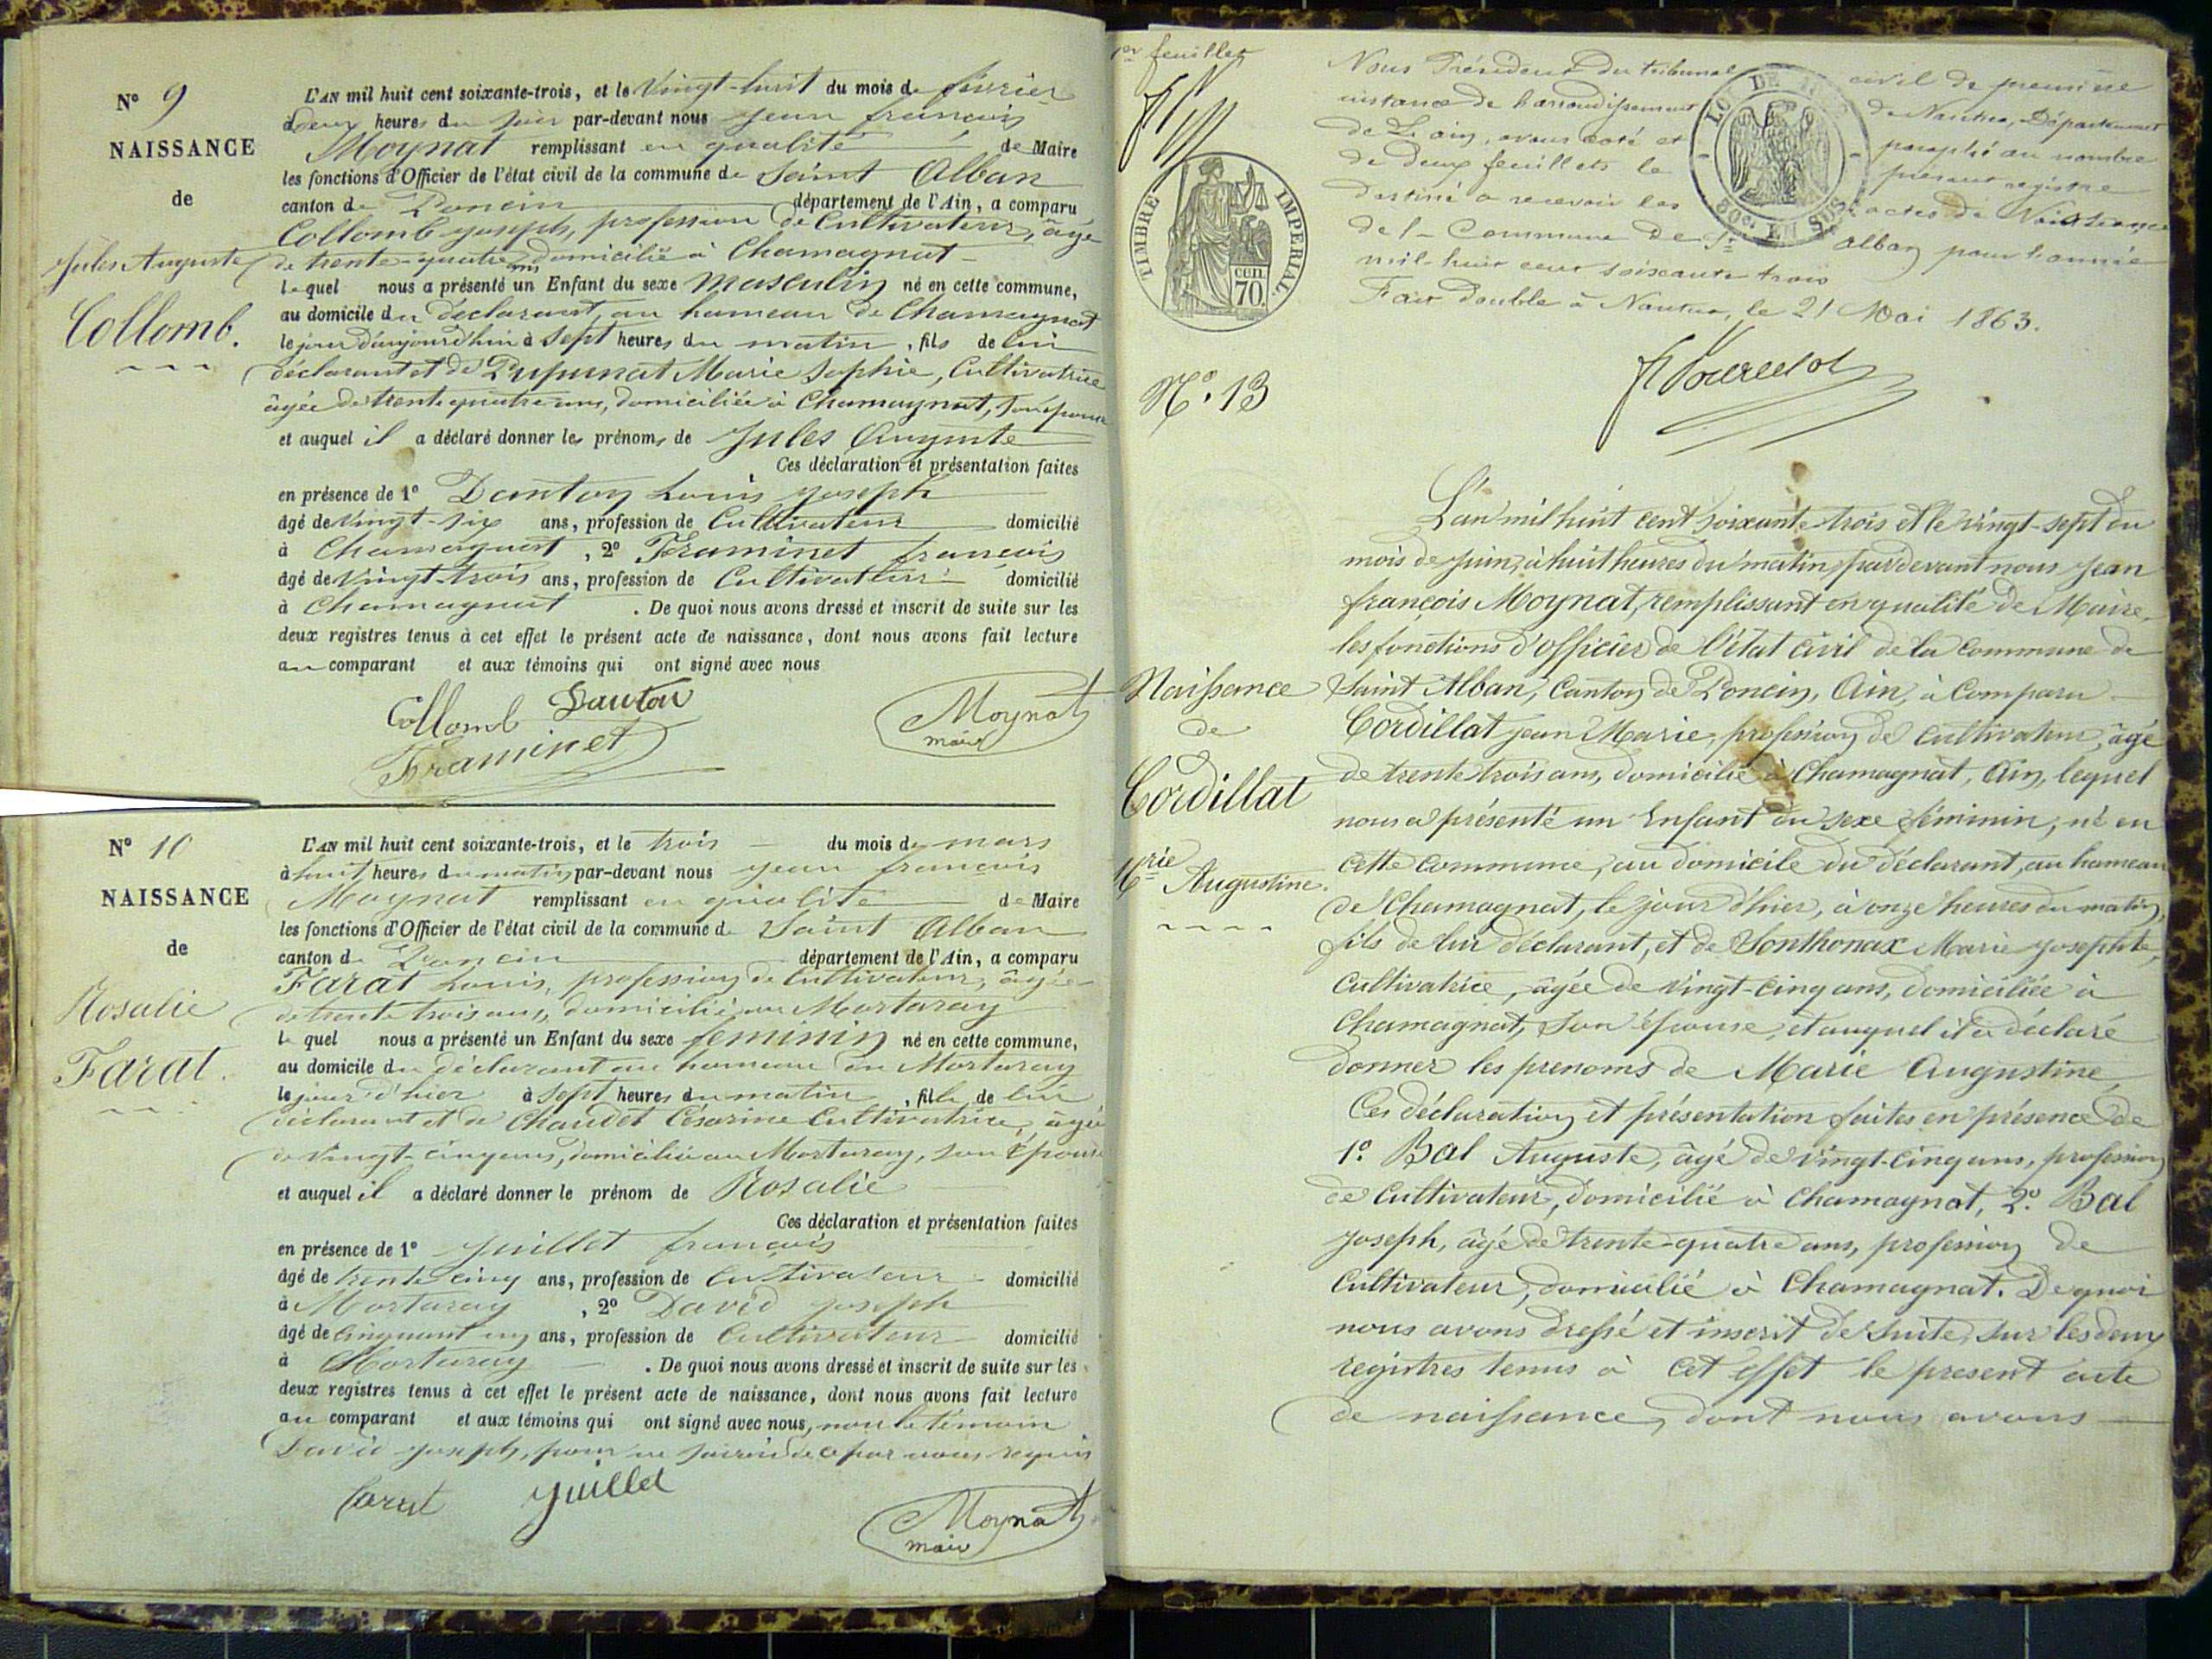 N° 9
NAISSANCE
de
Jules Auguste
Collomb.
L'AN mil huit cent soixante-trois, et le vingt-huit du mois de février
à deux heures du soir par-devant nous Jean françois
Moynat remplissant en qualité de Maire
les fonctions d'Officier de l'état civil de la commune de Saint Alban
canton de Poncin département de l'Ain, a comparu
Collomb joseph, profession de Cultivateur, âgé
de trente-quatre ans domicilié à Chamagnat
lequel nous a présenté un Enfant du sexe masculin né en cette commune,
au domicile du déclarant, au hameau de Chamagnat
le jour d'aujourd'hui à sept heures du matin, fils de lui
déclarant et de Marie Sophie, Cultivatrice
âgée de trente quatre ans, domiciliée à Chamagnat, son épouse
et auquel il a déclaré donner les prénoms de Jules Auguste
Ces déclaration et présentation faites
en présence de 1° Danton Louis joseph
âgé de vingt-six ans, profession de Cultivateur domicilié
à Chamagnat, 2° Framinet françois
âgé de vingt-trois ans, profession de Cultivateur domicilié
à Chamagnat. De quoi nous avons dressé et inscrit de suite sur les
deux registres tenus à cet effet le présent acte de naissance, dont nous avons fait lecture
au comparant et aux témoins qui ont signé avec nous
Collomb Danton
Framinet
Moynat
maire
N° 10
NAISSANCE
de
Rosalie
Farat.
L'AN mil huit cent soixante-trois, et le trois du mois de mars
à huit heures du matin par-devant nous Jean françois
Moynat remplissant en qualité de Maire
les fonctions d'Officier de l'état civil de la commune de Saint Alban
canton de Poncin département de l'Ain, a comparu
Farat Louis, profession de Cultivateur, âgé
de trente trois ans, domicilié au Mortaray
lequel nous a présenté un Enfant du sexe féminin né en cette commune,
au domicile du déclarant au hameau du Mortaray
le jour d'hier à sept heures du matin, fille de lui
déclarant et de Chaudet Césarine Cultivatrice, âgée
de vingt-cinq ans, domiciliée au Mortaray, son Épouse
et auquel il a déclaré donner le prénom de Rosalie
Ces déclaration et présentation faites
en présence de 1° Juillet françois
âgé de trente cinq ans, profession de Cultivateur domicilié
à Mortaray, 2° David joseph
âgé de cinquant un ans, profession de Cultivateur domicilié
à Mortaray. De quoi nous avons dressé et inscrit de suite sur les
deux registres tenus à cet effet le présent acte de naissance, dont nous avons fait lecture
au comparant et aux témoins qui ont signé avec nous, non le témoin
David joseph, pour ne savoir de ce par nous requis
Farat Juillet
Moynat
maire
1er feuillet
Nous Président du tribunal civil de première
instance de l'arrondissement de Nantua, Département
de L'ain, avons coté et paraphé au nombre
de deux feuillets le présent registre
destiné à recevoir les actes de Naissance
de la Commune de St alban pour l'année
mil-huit cent soixante trois
Fait double à Nantua, le 21 Mai 1863.
TIMBRE IMPERIAL
70 cen
LOI DE
50c. EN SUS
N°. 13
Naissance
de
Cordillat
Mrie Augustine.
L'an mil huit cent soixante trois et le vingt-sept du
mois de juin, à huit heures du matin, pardevant nous Jean
françois Moynat, remplissant en qualité de Maire
les fonctions d'officier de l'état civil de la commune de
Saint Alban, Canton de Poncin, Ain, à Comparu
Cordillat jean Marie, profession de cultivateur, âgé
de trente trois ans, domicilié à Chamagnat, Ain, lequel
nous a présenté un Enfant du sexe féminin, né en
cette commune, au domicile du déclarant, au hameau
de Chamagnat, le jour d'hier, à onze heures du matin,
fils de lui déclarant, et de Sonthonax Marie josephte,
Cultivatrice, âgée de vingt-cinq ans, domiciliée à
Chamagnat, son épouse, et auquel il a déclaré
donner les prenoms de Marie Augustine
Ces déclaration et présentation faites en présence de
1°. Bal Auguste, âgé de vingt-cinq ans, profession
de Cultivateur, domicilié à Chamagnat, 2°. Bal
joseph, âgé de trente-quatre ans, profession de
Cultivateur, domicilié à Chamagnat. De quoi
nous avons dressé et inscrit de suite sur les deux
registres tenus à cet effet le present acte
de naissance, dont nous avons